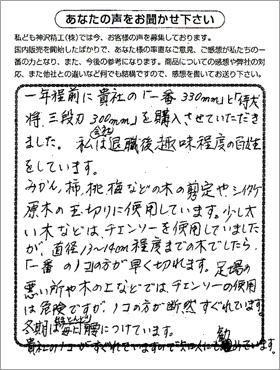 あなたの声をお聞かせ下さい
私ども神沢精工(株)では今、お客様の声を募集しております。
国内販売を開始したばかりで、あなたの率直なご意見、ご感想が私たちの一
番の力となり、また、今後の参考になります。商品についての感想や弊社の対
応、また他社との違いなど何でも結構ですので、感想を書いてお送り下さい。
一年程前に貴社の「一番 330mm」と「得大
将、三段刃 300mm」を購入させていただき
ました。私は会社退職後趣味程度の百姓
をしています。
みかん、柿、桃、梅などの木の剪定やシイタケ
原木の玉切りに使用しています。少し太
い木などは、チェンソーを使用していました
が、直径13〜14cm程度までの木でしたら、
「一番」のノコの方が早く切れます。足場の
悪い所や木の上などでは、チェンソーの使用
は危険ですが、ノコの方が断然すぐれています。
冬期は毎日腰につけています。
貴社のノコがすぐれていますので知人にも勧めています。